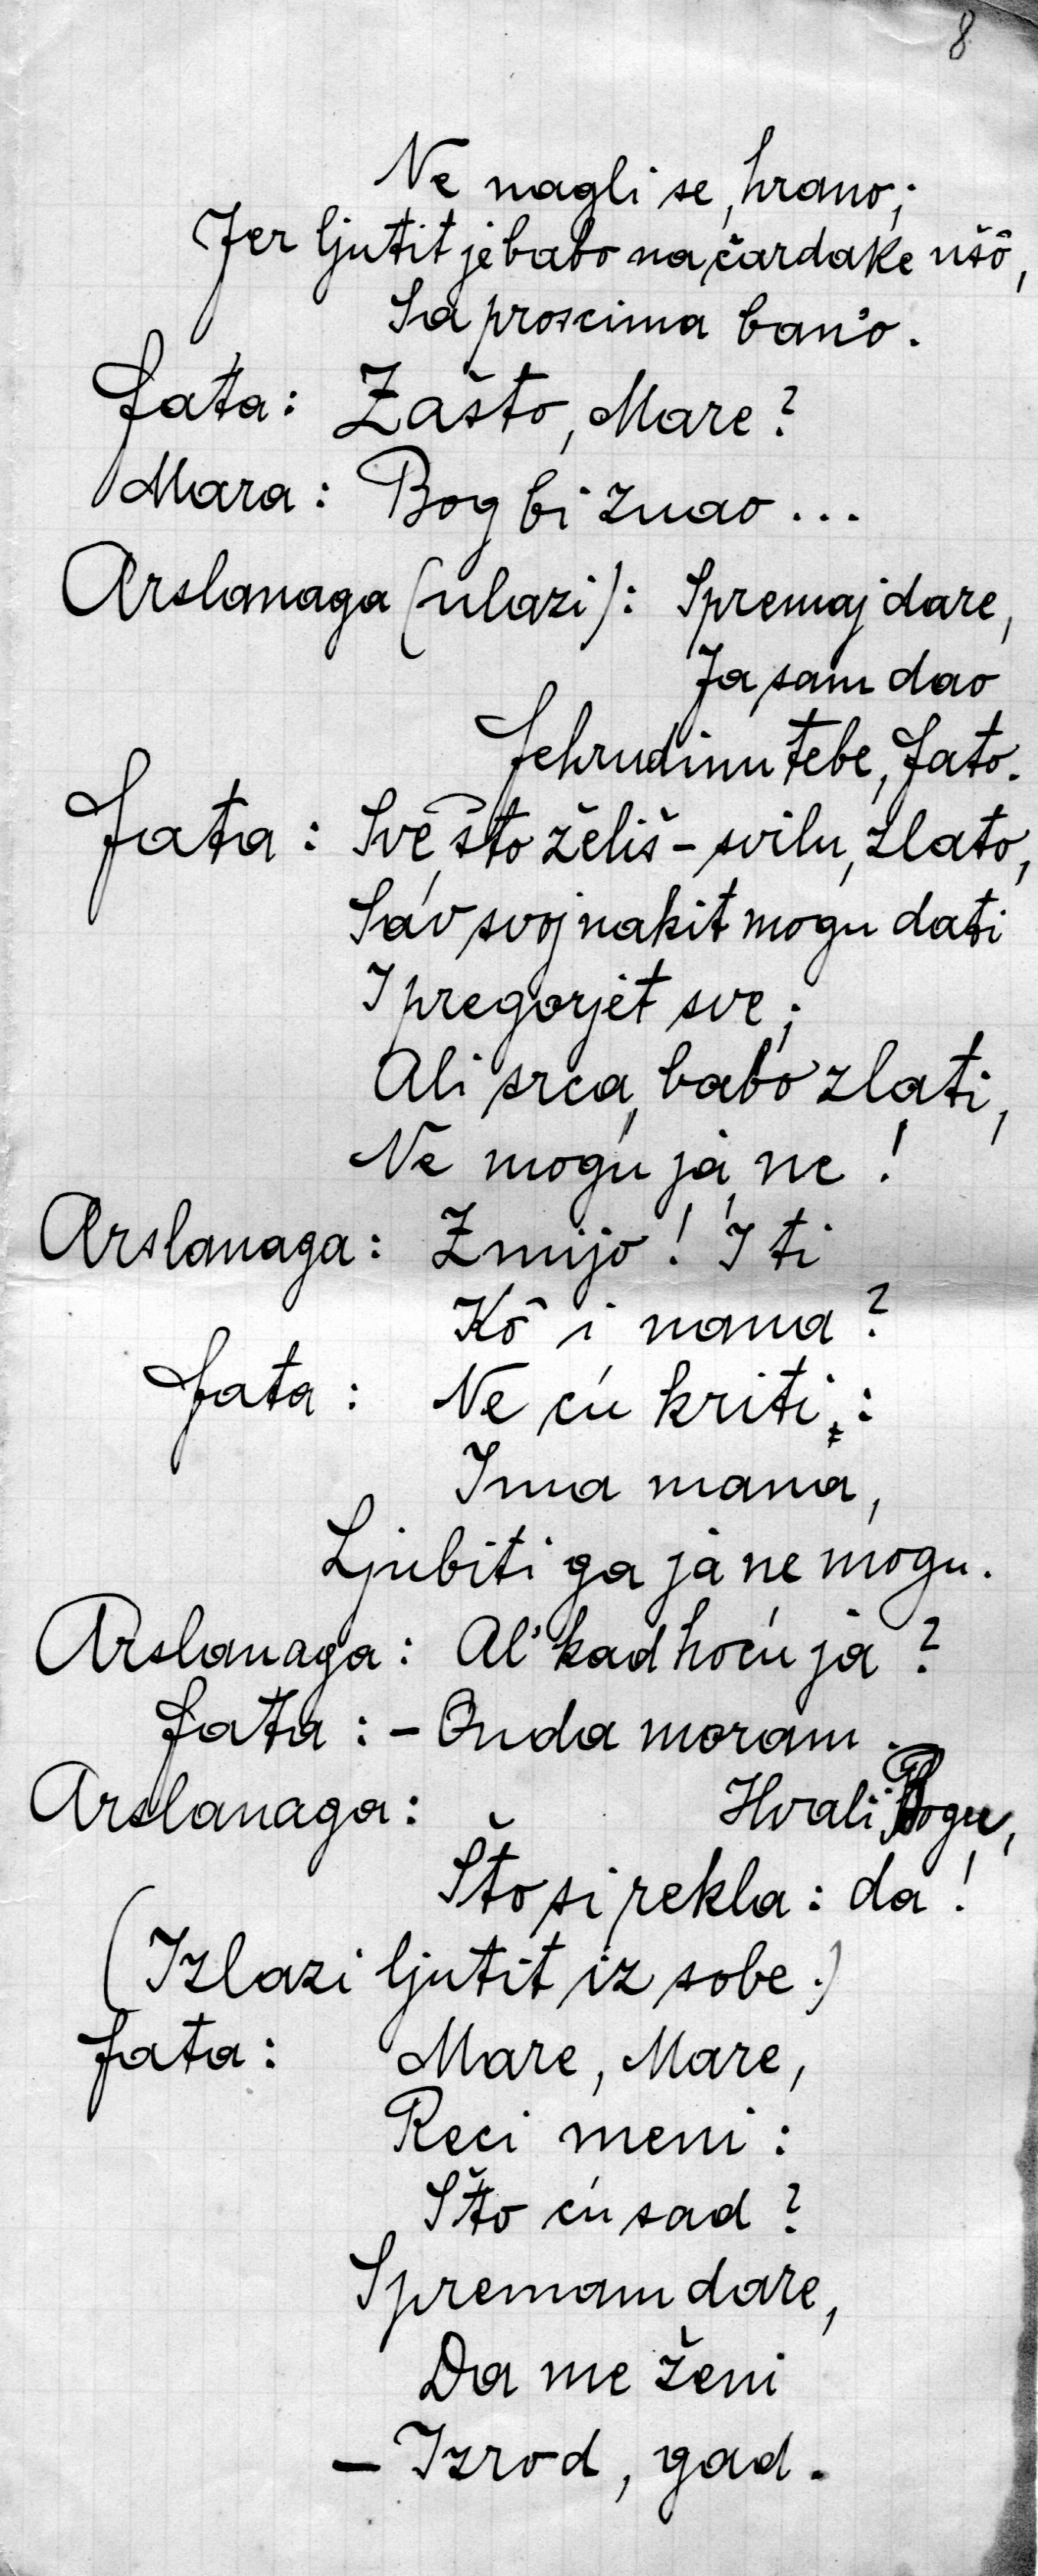 8
Ne nagli se, hrano;
Jer ljutit je babo na čardake ušô,
Sa proscima ban'o.
Fata: Zašto, Mare?
Mara: Bog bi znao...
Arslanaga (ulazi): Spremaj dare,
Ja sam dao
Fehrudinu tebe, Fato.
Fata: Sve što želiš - svilu, zlato,
Sav svoj nakit mogu dati
I pregorjet sve;
Ali srca, babo zlati,
Ne mogu ja, ne!
Arslanaga: Zmijo! I ti
Kô i nana?
Fata: Ne ću kriti:
Ima mana,
Ljubiti ga ja ne mogu.
Arslanaga: Al' kad hoću ja?
Fata: - Onda moram.
Arslanaga: Hvali Bogu,
Što si rekla: da!
(Izlazi ljutit iz sobe.)
Fata: Mare, Mare,
Reci meni:
Što ću sad?
Spremam dare,
Da me ženi
- Izrod, gad.